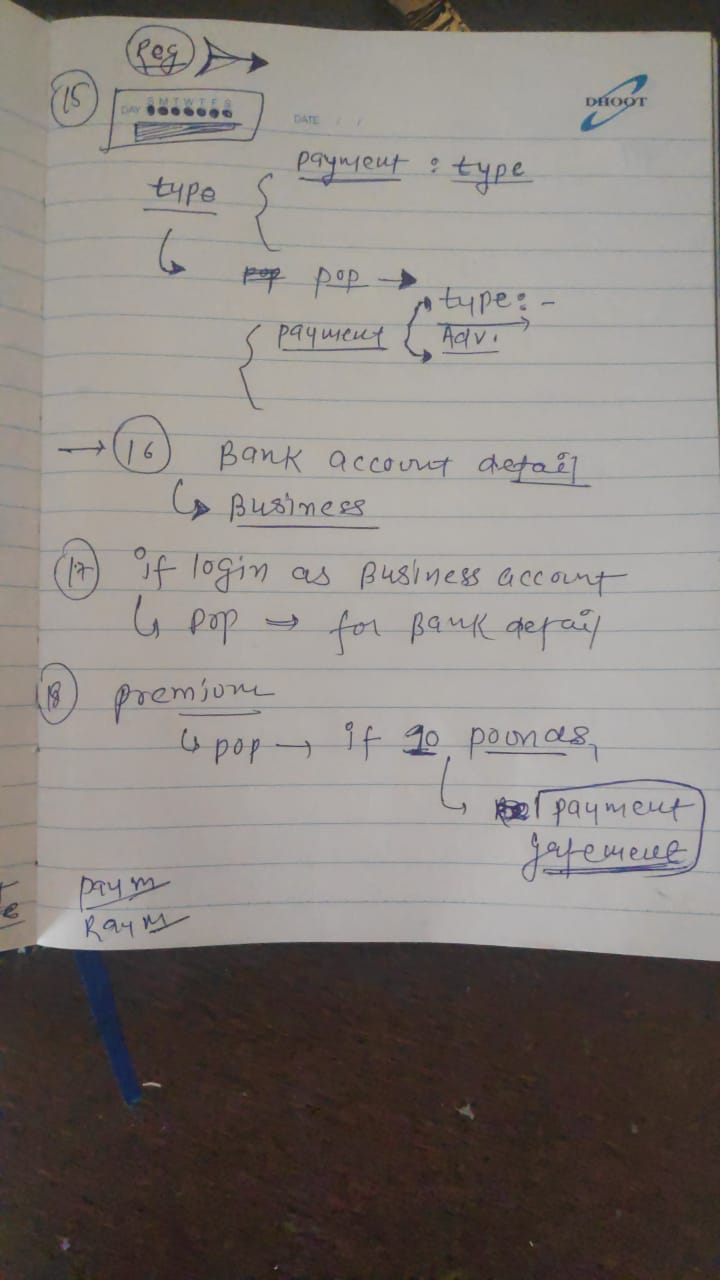 Reg
15
DAY S M T W T F S
DATE / /
DHOOT
payment : type
type
pop pop →
type: -
payment
Adv.
→ 16 Bank account detail
Business
17 if login as Business account
pop → for Bank detail
18 premium
pop → if 10 pounds,
payment
gatement
paym
Raym
e